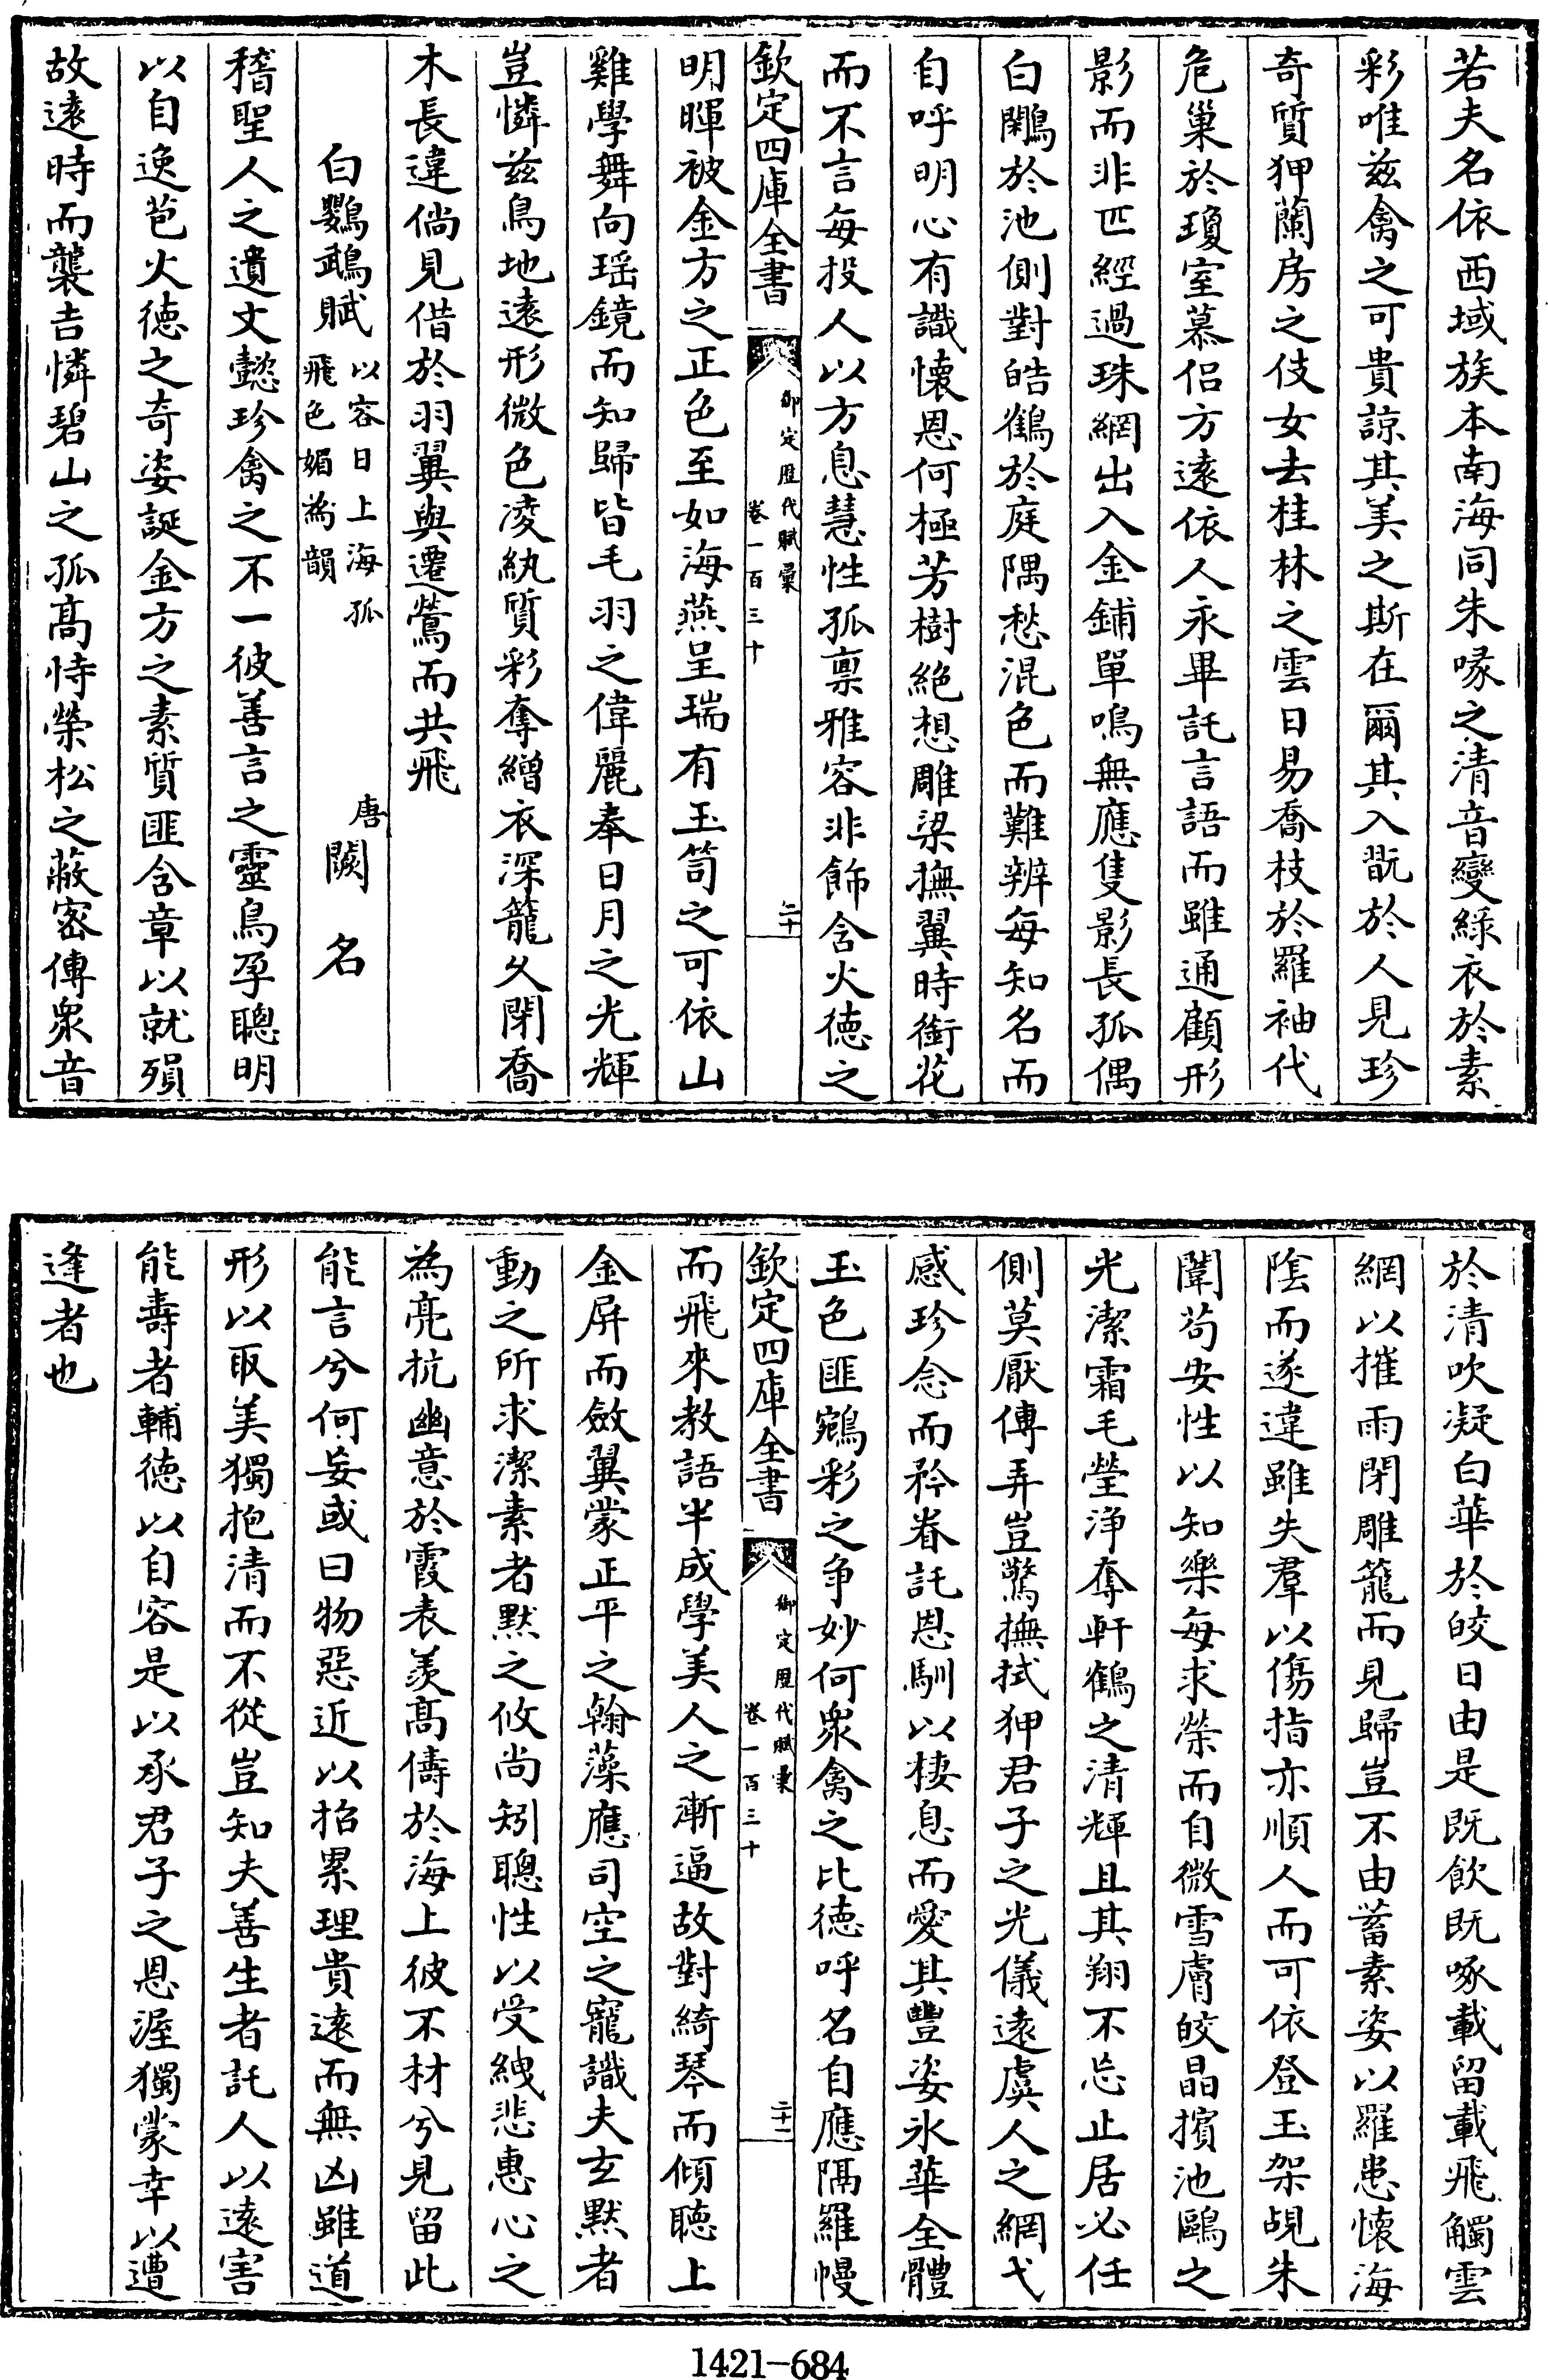 若夫名依西域族本南海同朱喙之清音變綠衣於素
彩唯兹禽之可貴諒其美之斯在爾其入翫於人見珍
奇質狎蘭房之伎女去桂林之雲日易喬枝於羅袖代
危巢於瓊室慕侣方遠依人永畢託言語而雖通顧形
影而非匹經過珠網出入金鋪單鳴無應隻影長孤偶
白鷴於池側對皓鶴於庭隅愁混色而難辨每知名而
自呼明心有識懷恩何極芳樹絶想雕梁撫翼時銜花
而不言每投人以方息慧性孤禀雅容非飾含火德之
欽定四庫全書 御定歴代賦彙 卷一百三十 二十
明暉被金方之正色至如海燕呈瑞有玉笥之可依山
雞學舞向瑶鏡而知歸皆毛羽之偉麗奉日月之光輝
豈憐兹鳥地遠形微色凌紈質彩奪繒衣深籠久閉喬
木長違倘見借於羽翼與遷鶯而共飛
白鸚鵡賦 以容日上海孤飛色媚為韻 唐闕名
稽聖人之遺文懿珍禽之不一彼善言之靈鳥孕聰明
以自逸苞火德之奇姿誕金方之素質匪含章以就殞
故遠時而襲吉憐碧山之孤髙恃榮松之蔽密傳衆音
於清吹凝白華於皎日由是既飲既啄載留載飛觸雲
網以摧雨閉雕籠而見歸豈不由蓄素姿以羅患懷海
隂而遂違雖失羣以傷指亦順人而可依登玉架覘朱
闈苟安性以知樂每求榮而自微雪膚皎晶擯池鷗之
光潔霜毛瑩浄奪軒鶴之清輝且其翔不忘止居必任
側莫厭傳弄豈驚撫拭狎君子之光儀遠虞人之網弋
感珍念而矜眷託恩馴以棲息而愛其豐姿氷華全體
玉色匪鵷彩之争妙何衆禽之比德呼名自應隔羅幔
欽定四庫全書 御定歴代賦彙 卷一百三十 二十一
而飛來教語半成學美人之漸逼故對綺琴而傾聴上
金屏而斂翼蒙正平之翰藻應司空之寵識夫玄黙者
動之所求潔素者黙之攸尚矧聰性以受絏悲惠心之
為亮抗幽意於霞表羨髙儔於海上彼不材兮見留此
能言兮何妄或曰物惡近以招累理貴遠而無凶雖道
形以取美獨抱清而不從豈知夫善生者託人以遠害
能壽者輔德以自容是以承君子之恩渥獨蒙幸以遭
逢者也
1421-684